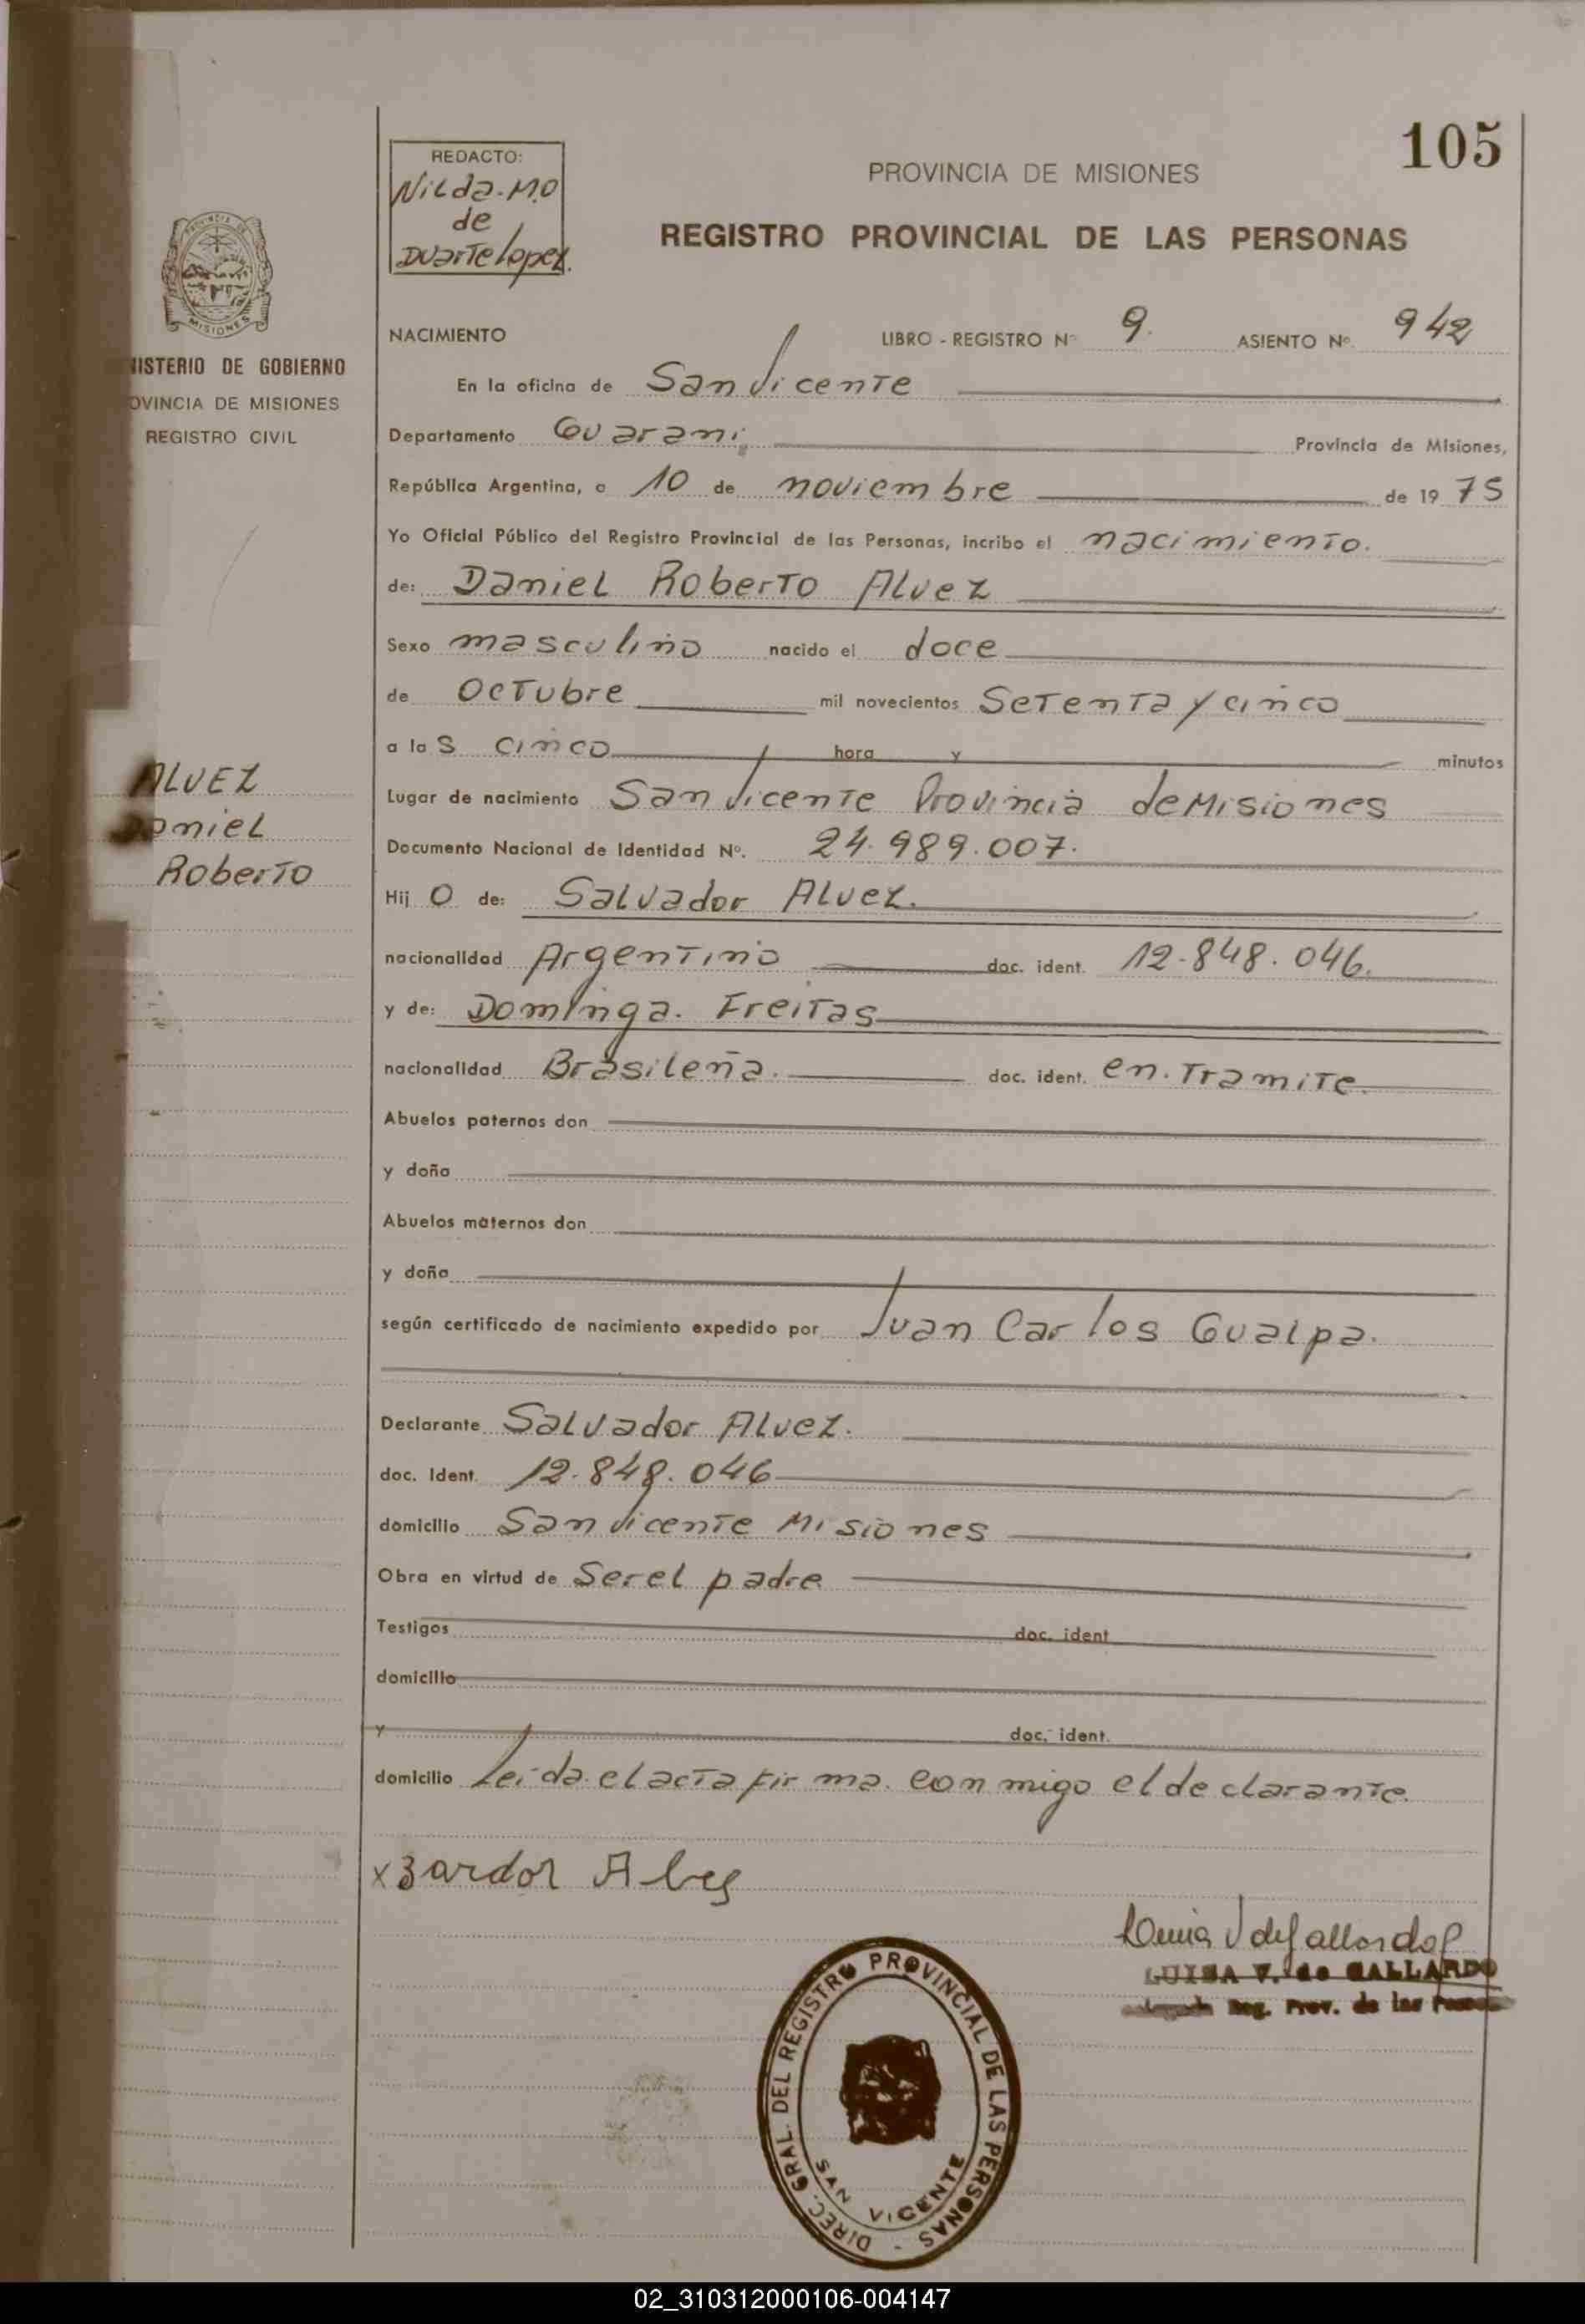 105
REDACTO:
Nilda. M.O
de
Duarte Lopez.
PROVINCIA DE MISIONES
REGISTRO PROVINCIAL DE LAS PERSONAS
MISIONES
NISTERIO DE GOBIERNO
OVINCIA DE MISIONES
REGISTRO CIVIL
NACIMIENTO LIBRO - REGISTRO Nº 9. ASIENTO Nº 942
En la oficina de San Vicente
Departamento Guarani Provincia de Misiones,
República Argentina, a 10 de noviembre de 19 75
Yo Oficial Público del Registro Provincial de las Personas, incribo el nacimiento.
de: Daniel Roberto Alvez
Sexo masculino nacido el doce
de Octubre mil novecientos Setenta y cinco
a la s cinco hora y minutos
ALVEZ
Daniel
Roberto
Lugar de nacimiento San Vicente Provincia de Misiones
Documento Nacional de Identidad Nº. 24.989.007.
Hij o de: Salvador Alvez.
nacionalidad Argentino doc. ident. 12.848.046.
y de: Dominga. Freitas
nacionalidad Brasileña. doc. ident. en. Tramite.
Abuelos paternos don
y doña
Abuelos maternos don
y doña
según certificado de nacimiento expedido por Juan Carlos Gualpa.
Declarante Salvador Alvez.
doc. Ident. 12.848.046
domicilio San Vicente Misiones
Obra en virtud de Ser el padre
Testigos doc. ident
domicilio
y doc. ident.
domicilio Leida el acta firma. conmigo el declarante.
x 3ardor Albes
LUISA V. de GALLARDO
Reg. Prov. de las
DIREC. GRAL. DEL REGISTRO PROVINCIAL DE LAS PERSONAS -
SAN VICENTE
02_310312000106-004147